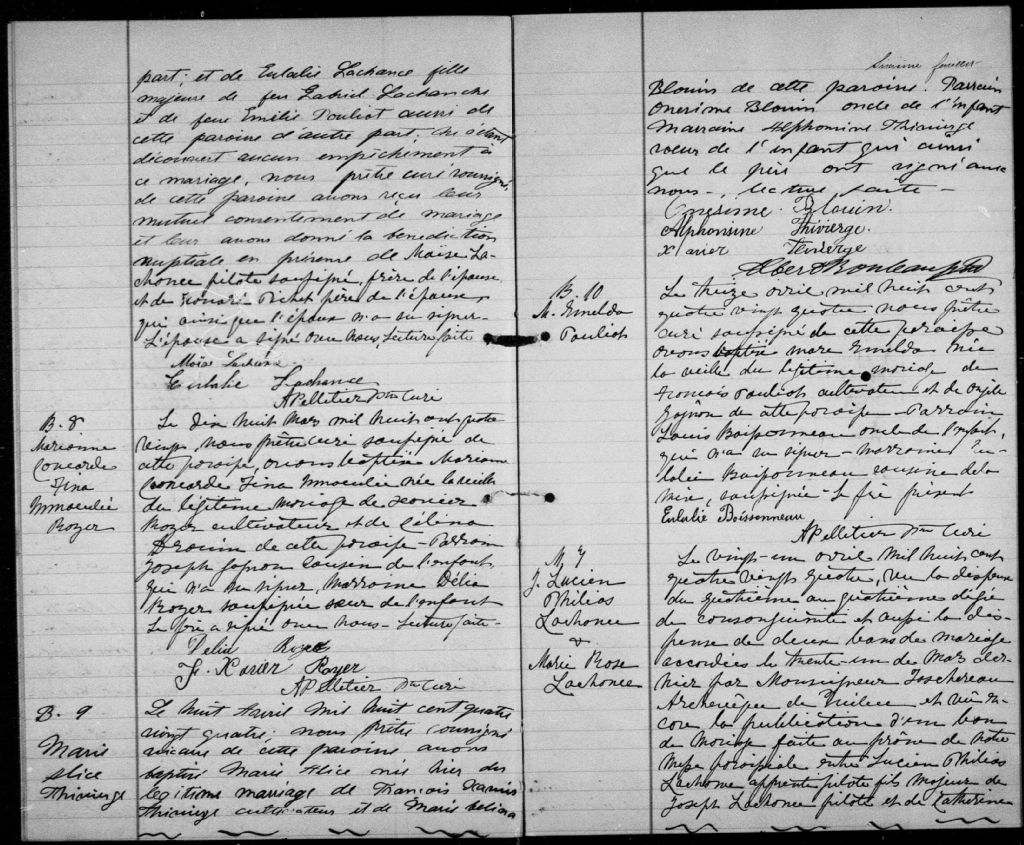 part; et de Eulalie Lachance fille
majeure de feu Gabriel Lachance
et de feue Emélie Pouliot aussi de
cette paroisse d'autre part, ne s'étant
découvert aucun empêchement à
ce mariage, nous prêtre curé soussigné
de cette paroisse avons reçu leur
mutuel consentement de mariage
et leur avons donné la bénédiction
nuptiale en présence de Moïse La-
chance pilote soussigné, frère de l'épouse
et de Honoré Pichet père de l'épouse
qui ainsi que l'époux n'a su signer.
L'épouse a signé avec nous, Lecture faite
Moïse Lachance
Eulalie Lachance
A Pelletier Ptre Curé
B. 8
Marianne
Concorde
Fina
Immaculée
Royer
Le dix huit Mars mil huit cent quatre
vingt, Nous prêtre curé soussigné de
cette paroisse, avons baptisé Mariane
Concorde Fina Immaculée née la veille
du légitime mariage de Xavier
Royer cultivateur et de Célina
Drouin de cette paroisse - Parrain
Joseph Gagnon cousin de l'enfant
qui n'a su signer, Marraine Délia
Royer soussignée sœur de l'enfant
Le père a signé avec nous - Lecture faite -
Delia Royer
F. Xavier Royer
A Pelletier Ptre Curé
B. 9
Marie
Alice
Thivierge
Le huit Avril mil huit cent quatre
vingt quatre, nous prêtre soussigné
vicaire de cette paroisse avons
baptisé Marie Alice née hier du
légitime mariage de François Xavier
Thivierge cultivateur et de Marie
Blouin de cette paroisse. Parrain
Onesime Blouin oncle de l'enfant
Marraine Alphonsine Thivierge
sœur de l'enfant qui ainsi
que le père ont signé avec
nous - lecture faite -
Onesime Blouin.
Alphonsine Thivierge.
Xavier Thivierge
B. 10
M. Emelda
Pouliot
Le treize avril mil huit cent
quatre vingt quatre nous prêtre
curé soussigné de cette paroisse
avons baptisé Marie Emelda née
la veille du légitime mariage de
François Pouliot cultivateur et de
Gagnon de cette paroisse - Parrain
Louis Boissonneau oncle de l'enfant,
qui n'a su signer - Marraine Eu-
lalie Boissonneau cousine de la
mère, soussignée - Le père présent
Eulalie Boissonneau
A Pelletier Ptre Curé
M 7
J. Lucien
Philias
Lachance
&
Marie Rose
Lachance
Le vingt-un avril mil huit cent
quatre vingt quatre, vu la dispense
du quatrième au quatrième degré
de consanguinité et aussi la dis-
pense de deux bans de mariage
accordées le trente-un de Mars der-
nier par Monseigneur Taschereau
Archevêque de Québec et vu en-
core la publication d'un ban
de Mariage faite au prône de notre
Messe paroissiale entre Lucien Philias
Lachance apprenti pilote fils Majeur de
Joseph Lachance pilote et de Catherine